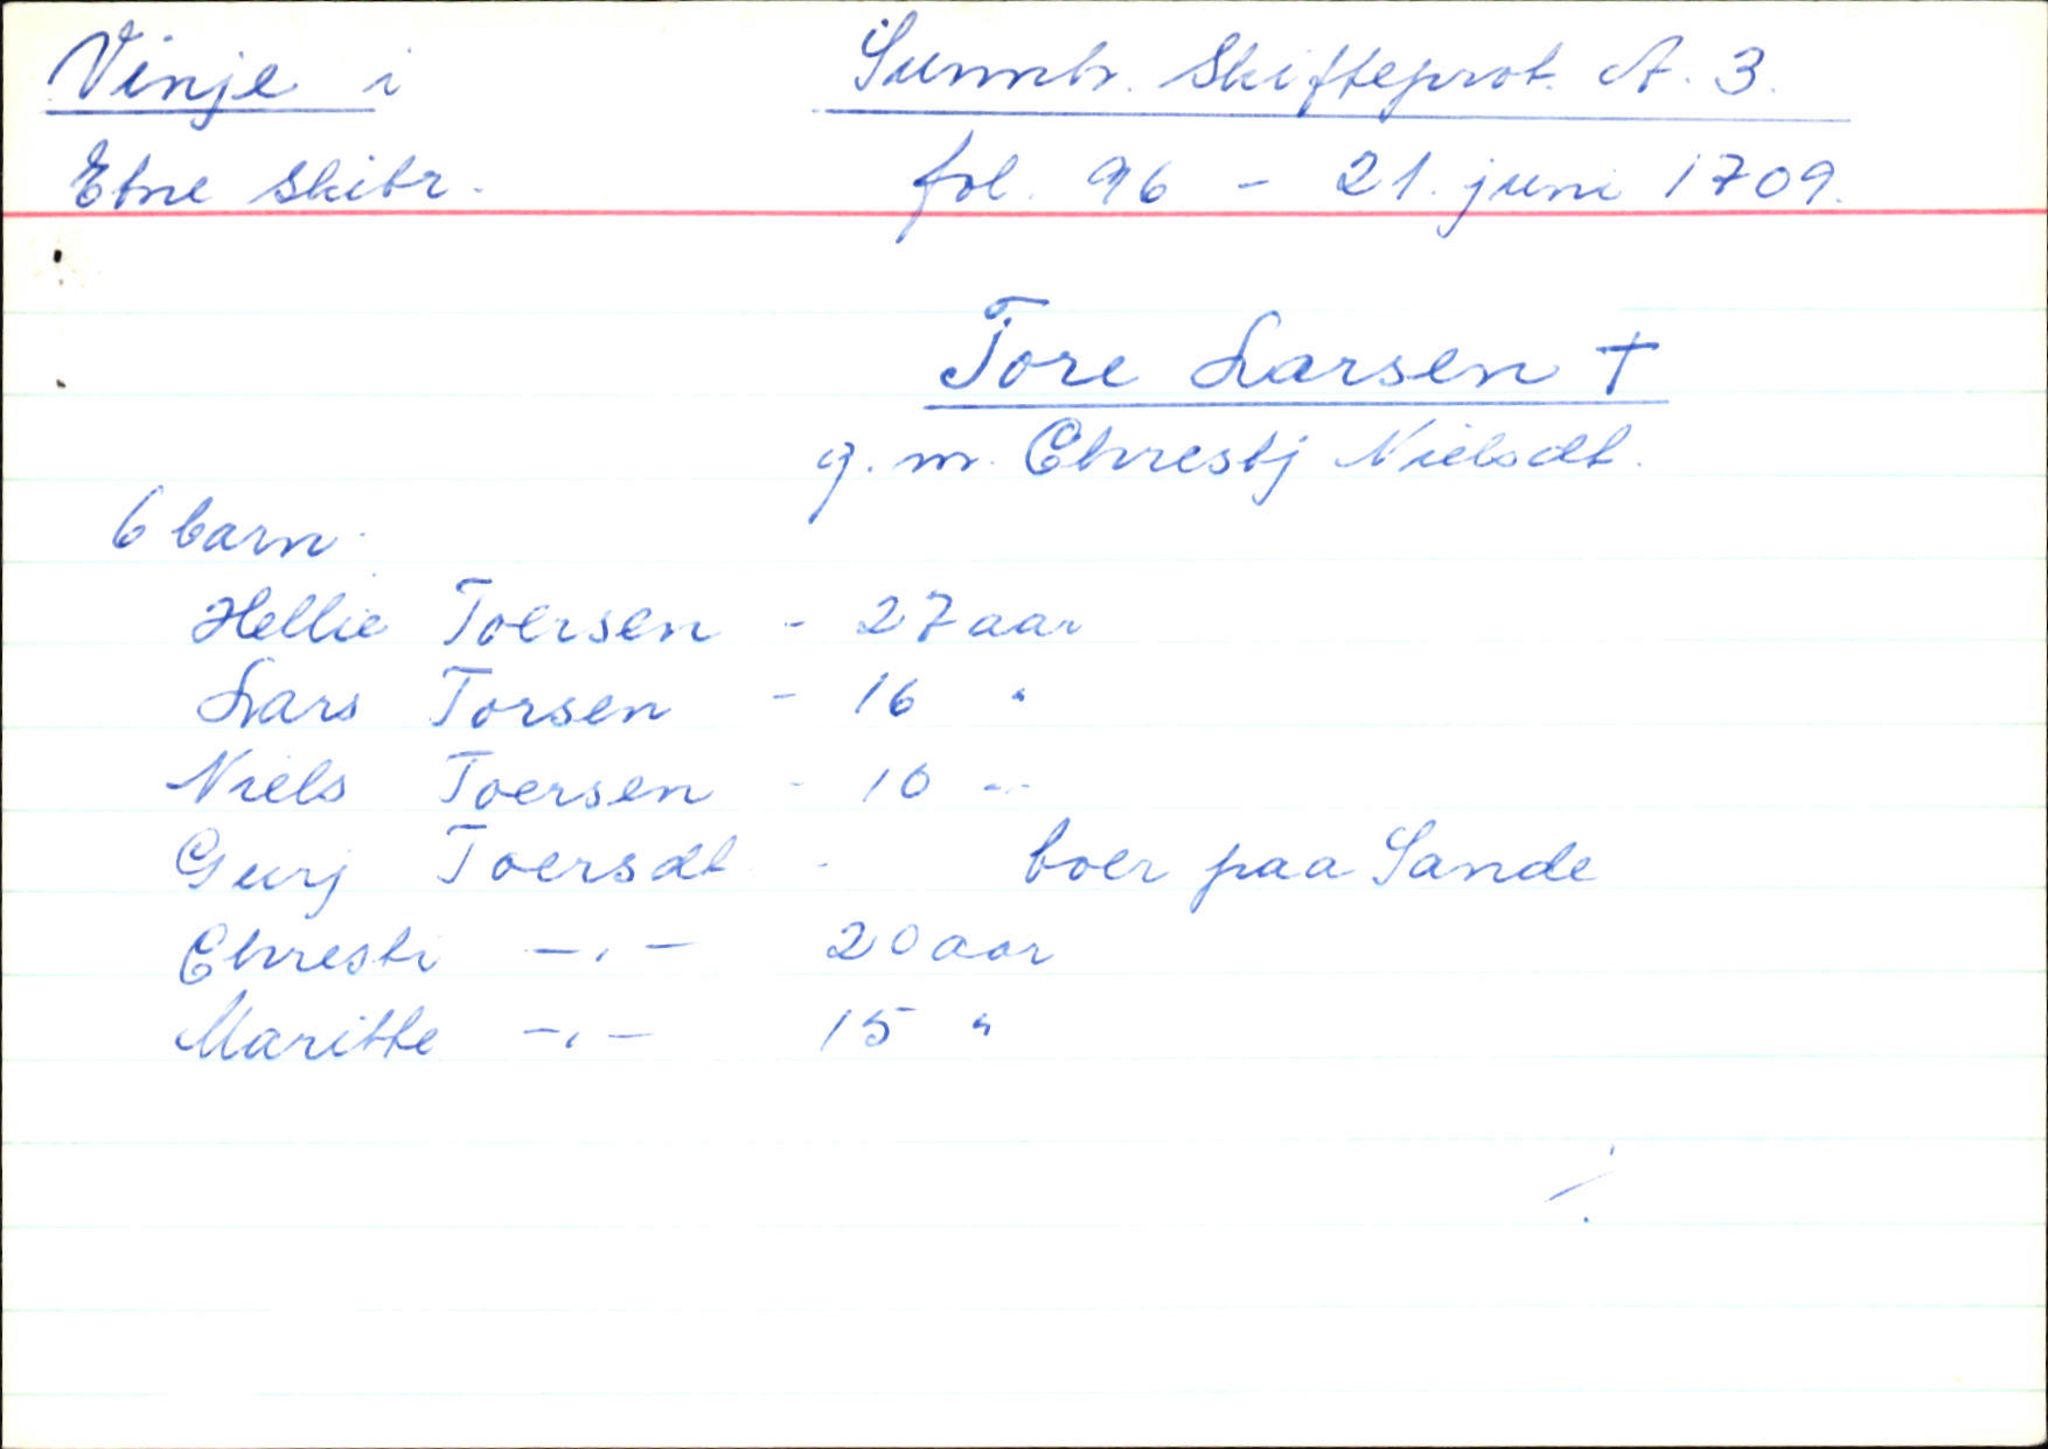 Vinje i
Etne skibr.
Sunnh. Skifteprot. A. 3.
fol. 96 - 21. juni 1709.
Tore Larsen †
g. m. Chrestj Nielsdt.
6 barn
Hellie Toersen - 27 aar
Lars Torsen - 16 "
Niels Toersen - 10 "
Gurj Toersdt - boer paa Sande
Chresti —„— 20 aar
Maritte —„— 15 "